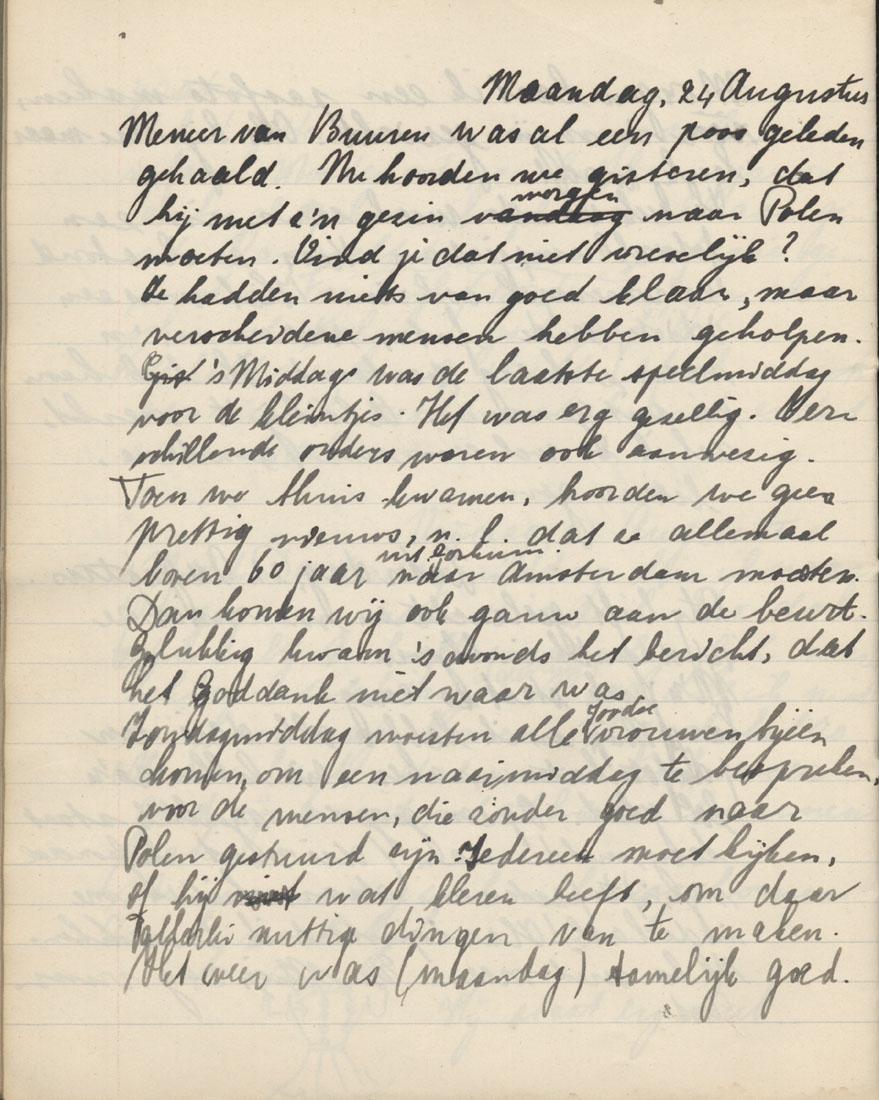 Maandag, 24 Augustus
Meneer van Buuren was al een poos geleden
gehaald. Nu hoorden we gisteren, dat
morgen
hij met z'n gezin vandaag naar Polen
moeten. Vind je dat niet vreselijk?
Ze hadden niets van goed klaar, maar
verscheidene mensen hebben geholpen.
Gist 's Middags was de laatste speelmiddag
voor de kleintjes. Het was erg gezellig. Ver-
schillende ouders waren ook aanwezig.
Toen we thuis kwamen, hoorden we geen
prettig nieuws, n. l. dat ze allemaal
uit Gorkum
boven 60 jaar naar Amsterdam moeten.
Dan komen wij ook gauw aan de beurt.
Gelukkig kwam 's avonds het bericht, dat
het Goddank niet waar was.
Joodse
Zondagmiddag moesten alle vrouwen bijeen
komen, om een naaimiddag te bespreken,
voor de mensen, die zonder goed naar
Polen gestuurd zijn. Iedereen moet kijken,
of hij niet wat kleren heeft, om daar
allerlei nuttige dingen van te maken.
Het weer was (maandag) tamelijk goed.